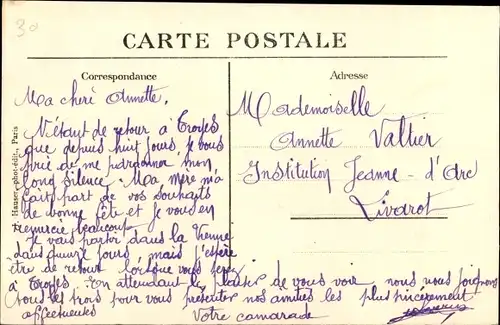 30
CARTE POSTALE
Correspondance
Adresse
Hauser, phot-édit., Paris
Ma cheré Annette,
N'étant de retour à Troyes
que depuis huit jours, je vous
prie de me pardonner mon
long silence. Ma mère m'a
fait part de vos souhaits
de bonne fête et je vous en
remercie beaucoup.
Je vais partir dans la Vienne
dans quinze jours, mais j'espère
être de retour lorsque vous serez
à Troyes. En attendant le plaisir de vous voir nous nous joignons
tous les trois pour vous présenter nos amitiés les plus sincèrement
affectueuses
Votre camarade
Mademoiselle
Annette Valtier
Institution Jeanne-d'Arc
Livarot